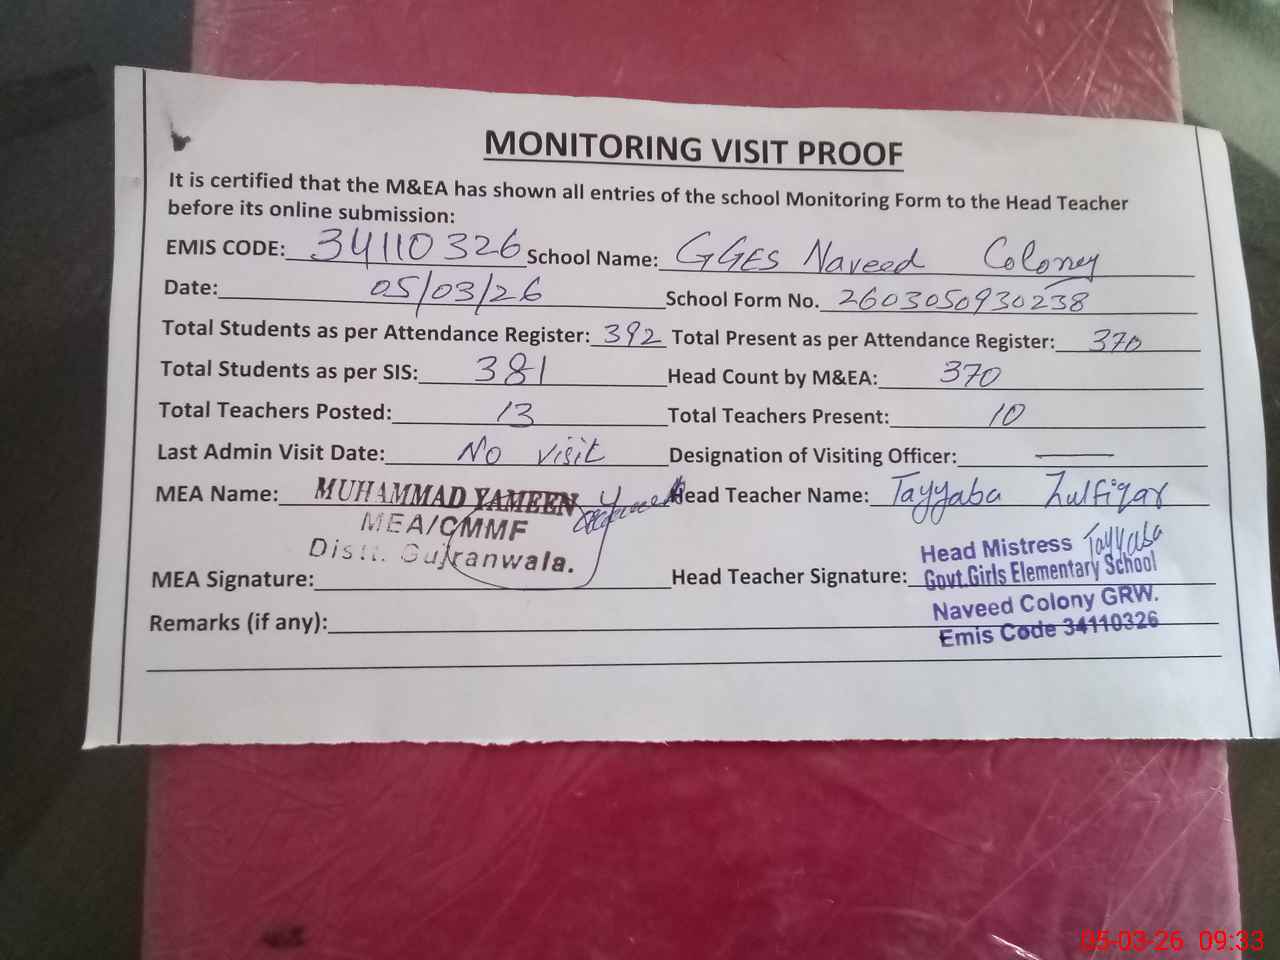 MONITORING VISIT PROOF
It is certified that the M&EA has shown all entries of the school Monitoring Form to the Head Teacher
before its online submission:
EMIS CODE: 34110326 School Name: GGES Naveed Colony
Date: 05/03/26 School Form No. 2603050930238
Total Students as per Attendance Register: 392 Total Present as per Attendance Register: 370
Total Students as per SIS: 381 Head Count by M&EA: 370
Total Teachers Posted: 13 Total Teachers Present: 10
Last Admin Visit Date: No visit Designation of Visiting Officer: —
MEA Name: MUHAMMAD YAMEEN Head Teacher Name: Tayyaba Zulfiqar
MEA/CMMF
Distt. Gujranwala.
MEA Signature: Head Teacher Signature: Tayyaba
Head Mistress
Govt.Girls Elementary School
Naveed Colony GRW.
Emis Code 34110326
Remarks (if any):
05-03-26 09:33